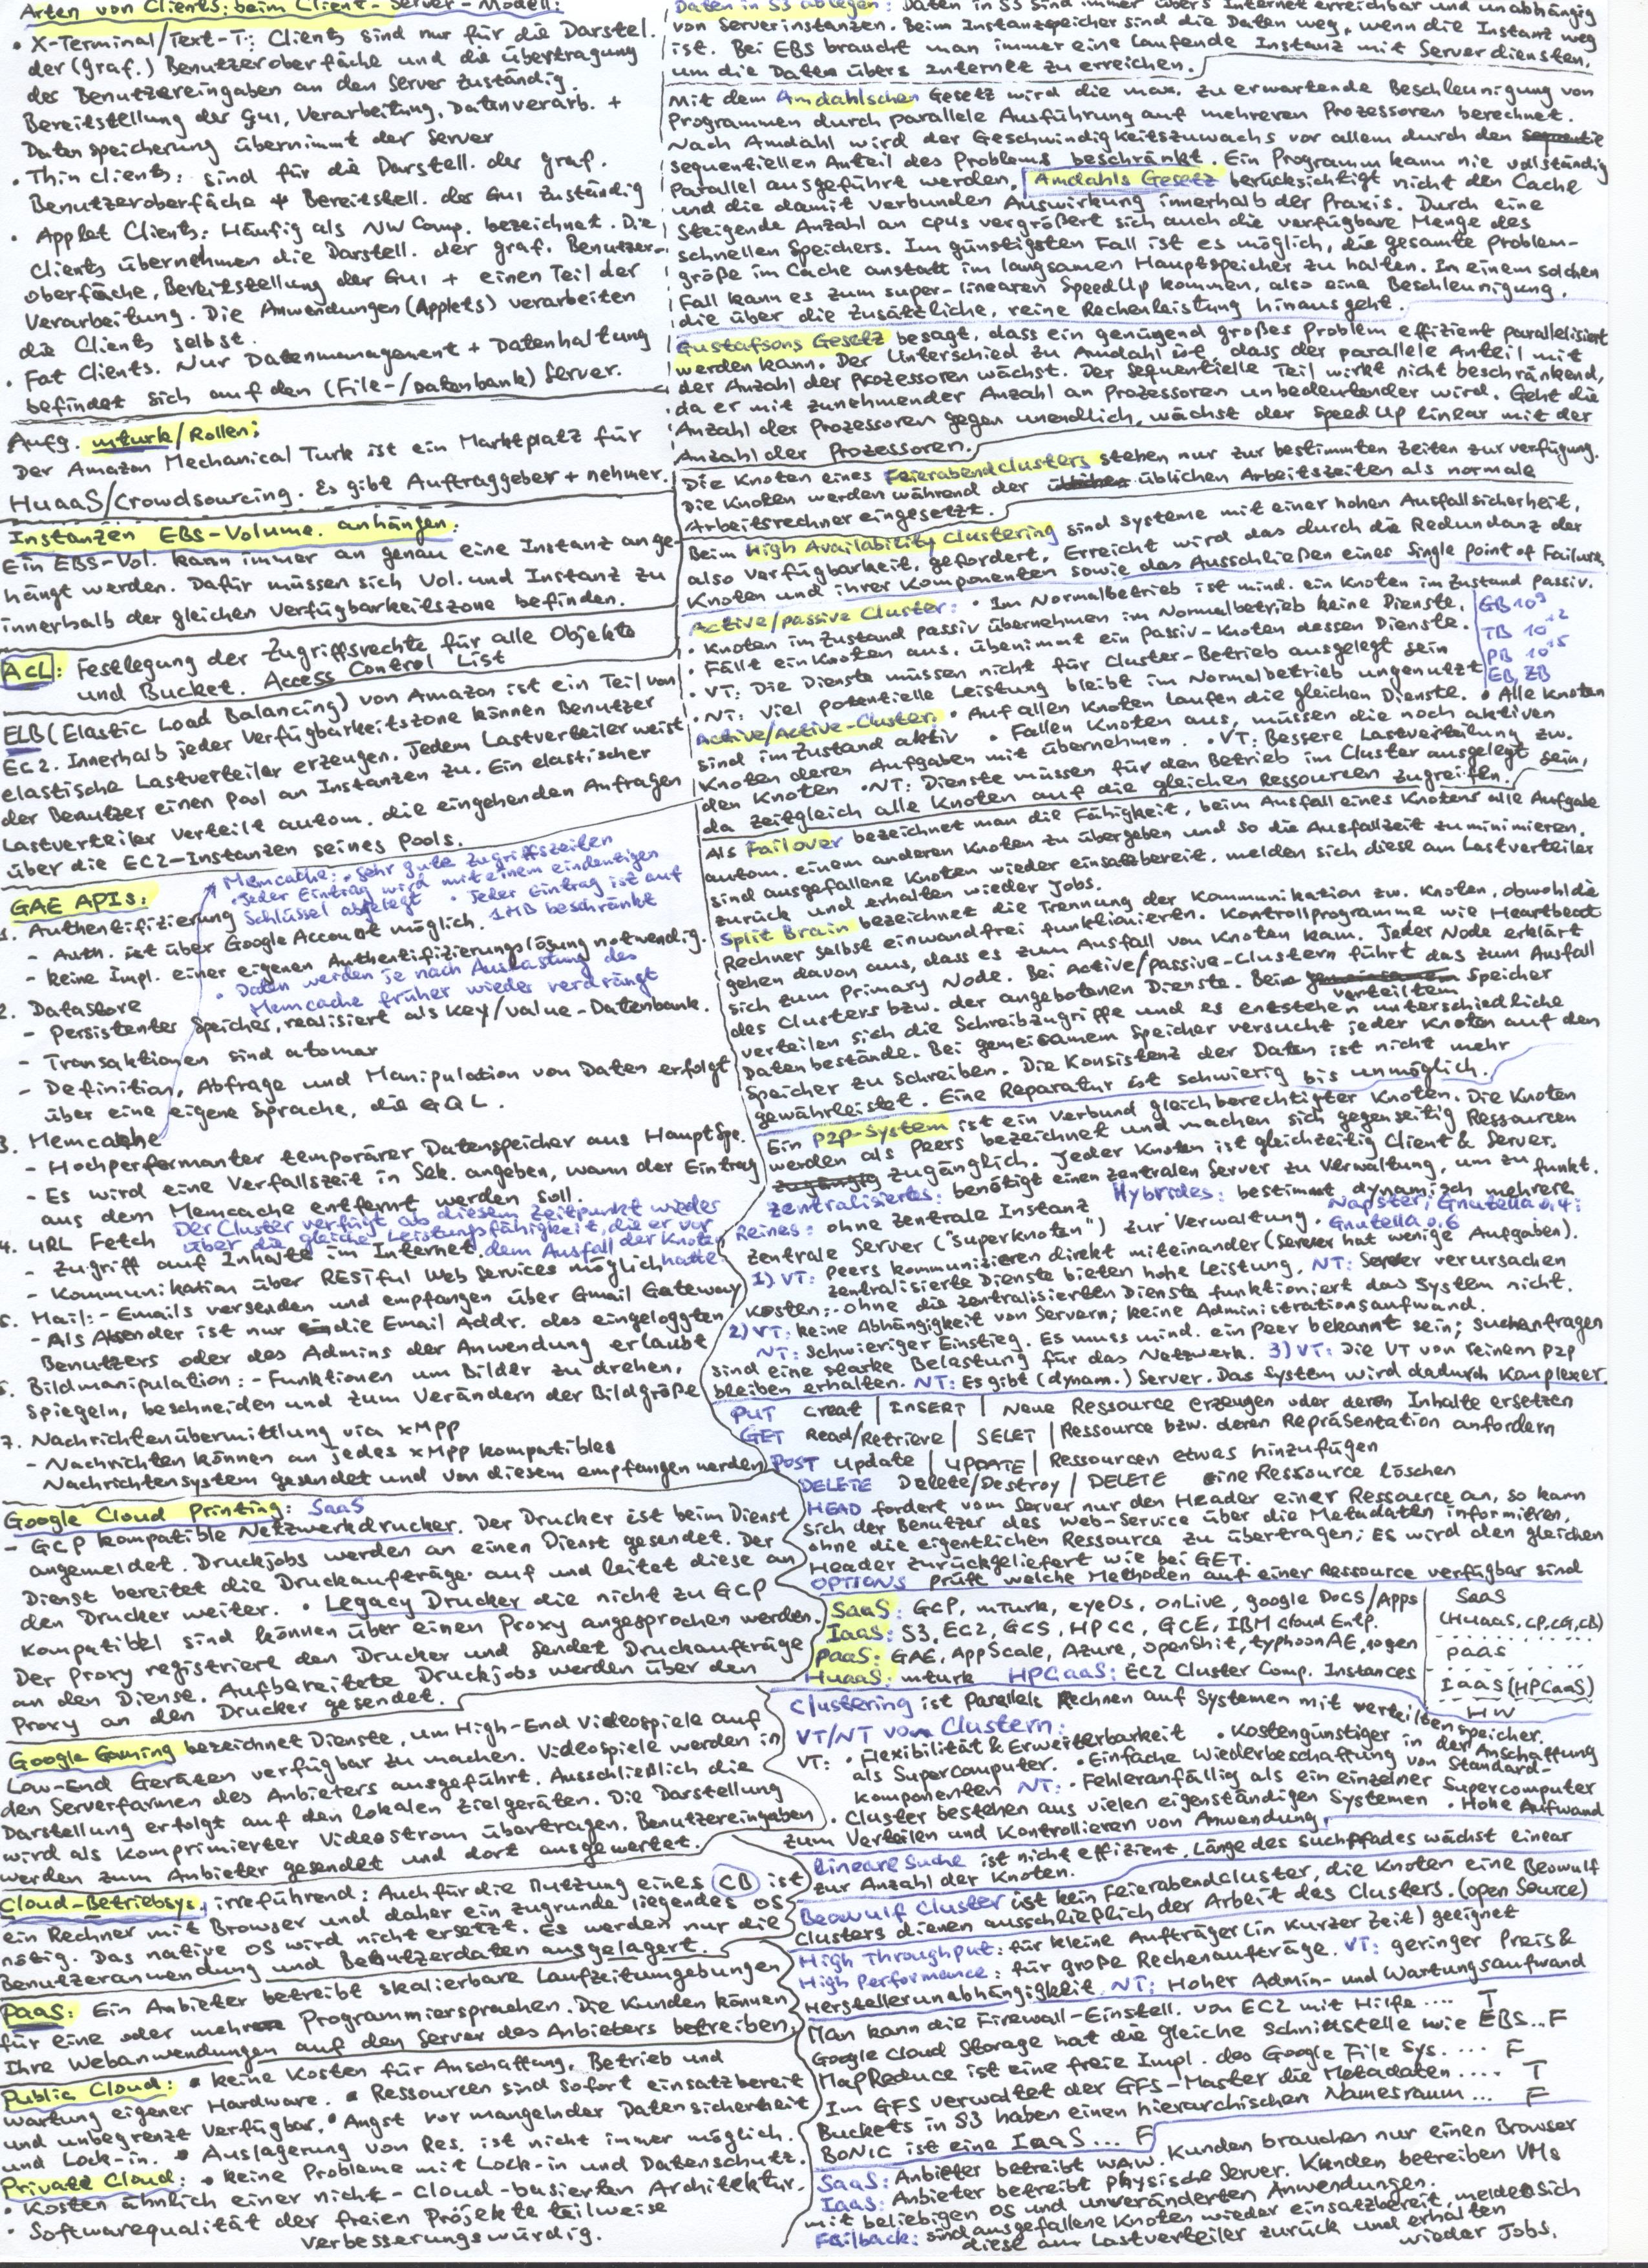 Arten von Clients: beim Client-Server-Modell:
• X-Terminal/Text-T: Clients sind nur für die Darstel.
der (graf.) Benutzeroberfäche und die übertragung
des Benutzereingaben an den Server zuständig.
Bereitstellung der GUI, Verarbeitung, Datenverarb. +
Datenspeicherung übernimmt der Server
• Thin clients: sind für die Darstell. der graf.
Benutzeroberfäche + Bereitstell. der GUI zuständig
• Applet Clients: Häufig als NW Comp. bezeichnet. Die
Clients übernehmen die Darstell. der graf. Benutzer-
oberfäche, Bereitstellung der GUI + einen Teil der
Verarbeitung. Die Anwendungen (Applets) verarbeiten
die Clients selbst.
• Fat Clients. Nur Datenmanagement + Datenhaltung
befindet sich auf den (File-/Datenbank) Server.
Aufg. mturk/Rollen:
Der Amazon Mechanical Turk ist ein Marktplatz für
HuaaS/Crowdsourcing. Es gibt Auftraggeber + nehmer.
Instanzen EBS-Volume. anhängen:
Ein EBS-Vol. kann immer an genau eine Instanz ange-
hängt werden. Dafür müssen sich Vol. und Instanz zu
innerhalb der gleichen Verfügbarkeitszone befinden.
ACL: Festlegung der Zugriffsrechte für alle Objekte
und Bucket. Access Control List
ELB (Elastic Load Balancing) von Amazon ist ein Teil von
EC2. Innerhalb jeder Verfügbarkeitszone können Benutzer
elastische Lastverteiler erzeugen. Jedem Lastverteiler weist
der Benutzer einen Pool an Instanzen zu. Ein elastischer
Lastverteiler verteilt autom. die eingehenden Anfragen
über die EC2-Instanzen seines Pools.
GAE APIs:
Memcache: • Sehr gute Zugriffszeiten
• Jeder Eintrag wird mit einem eindeutigen
Schlüssel abgelegt • Jeder Eintrag ist auf
1MB beschränkt
1. Authentifizierung
- Auth. ist über Google Account möglich.
- keine Impl. einer eigenen Authentifizierungslösung notwendig.
• Daten werden je nach Auslastung des
Memcache früher wieder verdrängt
2. Datastore
- Persistenter Speicher, realisiert als Key/Value-Datenbank.
- Transaktionen sind atomar
- Definition, Abfrage und Manipulation von Daten erfolgt
über eine eigene Sprache, die GQL.
3. Memcache
- Hochperformanter temporärer Datenspeicher aus Hauptspe.
- Es wird eine Verfallszeit in Sek. angeben, wann der Eintrag
aus dem Memcache entfernt werden soll.
Der Cluster verfügt ab diesem Zeitpunkt wieder
über die gleiche Leistungsfähigkeit, die er vor
dem Ausfall der Knoten hatte.
4. URL Fetch
- Zugriff auf Inhalte im Internet.
- Kommunikation über RESTful Web Services möglich
5. Mail: - Emails versenden und empfangen über Gmail Gateway
- Als Absender ist nur die Email Addr. des eingeloggten
Benutzers oder des Admins der Anwendung erlaubt
6. Bildmanipulation: - Funktionen um Bilder zu drehen,
spiegeln, beschneiden und zum Verändern der Bildgröße
7. Nachrichtenübermittlung via XMPP
- Nachrichten können an jedes XMPP kompatibles
Nachrichtensystem gesendet und von diesem empfangen werden
Google Cloud Printing: SaaS
- GCP kompatible Netzwerkdrucker. Der Drucker ist beim Dienst
angemeldet. Druckjobs werden an einen Dienst gesendet. Der
Dienst bereitet die Druckaufträge auf und leitet diese an
den Drucker weiter. • Legacy Drucker die nicht zu GCP
Kompatibel sind können über einen Proxy angesprochen werden.
Der Proxy registriert den Drucker und sendet Druckaufträge
an den Dienst. Aufbereitete Druckjobs werden über den
Proxy an den Drucker gesendet.
Google Gaming bezeichnet Dienste, um High-End Videospiele auf
Low-End Geräten verfügbar zu machen. Videospiele werden in
den Serverfarmen des Anbieters ausgeführt. Ausschließlich die
Darstellung erfolgt auf den lokalen Zielgeräten. Die Darstellung
wird als Komprimierter Videostrom übertragen. Benutzereingaben
werden zum Anbieter gesendet und dort ausgewertet.
Cloud-Betriebsys. irreführend: Auch für die Nutzung eines CB ist
ein Rechner mit Browser und daher ein zugrunde liegendes OS
nötig. Das native OS wird nicht ersetzt. Es werden nur die
Benutzeranwendung und Benutzerdaten ausgelagert.
PaaS: Ein Anbieter betreibt skalierbare Laufzeitumgebungen
für eine oder mehrere Programmiersprachen. Die Kunden können
Ihre Webanwendungen auf den Server des Anbieters betreiben.
Public Cloud: • keine Kosten für Anschaffung, Betrieb und
Wartung eigener Hardware. • Ressourcen sind sofort einsatzbereit
und unbegrenzt verfügbar. • Angst vor mangelnder Datensicherheit
und Lock-in. • Auslagerung von Res. ist nicht immer möglich.
Private Cloud: • keine Probleme mit Lock-in und Datenschutz.
• Kosten ähnlich einer nicht-cloud-basierten Architektur.
• Softwarequalität der freien Projekte teilweise
verbesserungswürdig.
Daten in S3 ablegen: Daten in S3 sind immer übers Internet erreichbar und unabhängig
von Serverinstanzen. Beim Instanzspeicher sind die Daten weg, wenn die Instanz weg
ist. Bei EBS braucht man immer eine laufende Instanz mit Serverdiensten,
um die Daten übers Internet zu erreichen.
Mit dem Amdahlschen Gesetz wird die max. zu erwartende Beschleunigung von
Programmen durch parallele Ausführung auf mehreren Prozessoren berechnet.
Nach Amdahl wird der Geschwindigkeitszuwachs vor allem durch den
sequentiellen Anteil des Problems beschränkt. Ein Programm kann nie vollständig
Parallel ausgeführt werden. Amdahls Gesetz berücksichtigt nicht den Cache
und die damit verbunden Auswirkung innerhalb der Praxis. Durch eine
steigende Anzahl an CPUs vergrößert sich auch die verfügbare Menge des
schnellen Speichers. Im günstigsten Fall ist es möglich, die gesamte Problem-
größe im Cache anstatt im langsamen Hauptspeicher zu halten. In einem solchen
Fall kann es zum super-linearen SpeedUp kommen, also eine Beschleunigung,
die über die zusätzliche, reine Rechenleistung hinausgeht.
Gustafsons Gesetz besagt, dass ein genügend großes Problem effizient parallelisiert
werden kann. Der Unterschied zu Amdahl ist, dass der parallele Anteil mit
der Anzahl der Prozessoren wächst. Der sequentielle Teil wirkt nicht beschränkend,
da er mit zunehmender Anzahl an Prozessoren unbedeutender wird. Geht die
Anzahl der Prozessoren gegen unendlich, wächst der SpeedUp linear mit der
Anzahl der Prozessoren.
Die Knoten eines Feierabendclusters stehen nur zur bestimmten Zeiten zur verfügung.
Die Knoten werden während der üblichen Arbeitszeiten als normale
Arbeitsrechner eingesetzt.
Beim High Availability Clustering sind Systeme mit einer hohen Ausfallsicherheit,
also Verfügbarkeit, gefordert. Erreicht wird das durch die Redundanz der
Knoten und ihrer Komponenten sowie das Ausschließen eines Single point of Failure.
Active/passive Cluster: • Im Normalbetrieb ist mind. ein Knoten im Zustand passiv.
• Knoten im Zustand passiv übernehmen im Normalbetrieb keine Dienste.
• Fällt ein Knoten aus, übenimmt ein Passiv-Knoten dessen Dienste.
• VT: Die Dienste müssen nicht für Cluster-Betrieb ausgelegt sein
• NT: Viel potentielle Leistung bleibt im Normalbetrieb ungenutzt
GB 10⁹
TB 10¹²
PB 10¹⁵
EB, ZB
Active/Active-Cluster: • Auf allen Knoten laufen die gleichen Dienste. • Alle Knoten
sind im Zustand aktiv • Fallen Knoten aus, müssen die noch aktiven
Knoten deren Aufgaben mit übernehmen. • VT: Bessere Lastverteilung zw.
den Knoten • NT: Dienste müssen für den Betrieb im Cluster ausgelegt sein,
da zeitgleich alle Knoten auf die gleichen Ressourcen zugreifen.
Als Failover bezeichnet man die Fähigkeit, beim Ausfall eines Knotens alle Aufgabe
autom. einem anderen Knoten zu übergeben und so die Ausfallzeit zu minimieren.
sind ausgefallene Knoten wieder einsatzbereit, melden sich diese am Lastverteiler
zurück und erhalten wieder Jobs.
Split Brain bezeichnet die Trennung der Kommunikation zw. Knoten, obwohl die
Rechner selbst einwandfrei funktionieren. Kontrollprogramme wie Heartbeat
gehen davon aus, dass es zum Ausfall von Knoten kam. Jeder Node erklärt
sich zum Primary Node. Bei Active/passive-Clustern führt das zum Ausfall
des Clusters bzw. der angebotenen Dienste. Bei verteiltem Speicher
verteilen sich die Schreibzugriffe und es entstehen unterschiedliche
Datenbestände. Bei gemeisamem Speicher versucht jeder Knoten auf den
Speicher zu schreiben. Die Konsistenz der Daten ist nicht mehr
gewährleistet. Eine Reparatur ist schwierig bis unmöglich.
Ein P2P-System ist ein Verbund gleichberechtigter Knoten. Die Knoten
werden als Peers bezeichnet und machen sich gegenseitig Ressourcen
zugänglich. Jeder Knoten ist gleichzeitig Client & Server.
Zentralisiertes: benötigt einen zentralen Server zu Verwaltung, um zu funkt.
Napster, Gnutella 0.4:
Reines: ohne zentrale Instanz Hybrides: bestimmt dynamisch mehrere
zentrale Server ("Superknoten") zur Verwaltung. Gnutella 0.6
1) VT: Peers kommunizieren direkt miteinander (Server hat wenige Aufgaben).
zentralisierte Dienste bieten hohe Leistung. NT: Server verursachen
Kosten; ohne die zentralisierten Dienste funktioniert das System nicht.
2) VT: keine Abhängigkeit von Servern; keine Administrationsaufwand.
NT: Schwieriger Einstieg. Es muss mind. ein Peer bekannt sein; suchanfragen
sind eine starke Belastung für das Netzwerk. 3) VT: Die VT von reinem P2P
bleiben erhalten. NT: Es gibt (dynam.) Server. Das System wird dadurch Komplexer.
PUT Creat | INSERT | Neue Ressource erzeugen oder deren Inhalte ersetzen
GET Read/Retrieve | SELET | Ressource bzw. deren Repräsentation anfordern
POST Update | UPDATE | Ressourcen etwas hinzufügen
DELETE Delete/Destroy | DELETE eine Ressource löschen
HEAD fordert vom Server nur den Header einer Ressource an, so kann
sich der Benutzer des Web-Service über die Metadaten informieren,
ohne die eigentlichen Ressource zu übertragen; Es wird den gleichen
Header zurückgeliefert wie bei GET.
OPTIONS prüft welche Methoden auf einer Ressource verfügbar sind
SaaS: GCP, mTurk, eyeOs, OnLive, google Docs/Apps
IaaS: S3, EC2, GCS, HPCC, GCE, IBM Cloud Entp.
PaaS: GAE, AppScale, Azure, openShit, typhoonAE, 10gen
HuaaS: mturk HPCaaS: EC2 Cluster Comp. Instances
SaaS
(HuaaS, CP, CG, CB)
PaaS
IaaS (HPCaaS)
HW
Clustering ist Parallels Rechnen auf Systemen mit verteilten speicher.
VT/NT von Clustern:
VT: • Flexibilität & Erweiterbarkeit • Kostengünstiger in der Anschaffung
als Supercomputer. • Einfache Wiederbeschaffung von Standard-
komponenten NT: • Fehleranfällig als ein einzelner Supercomputer
• Cluster bestehen aus vielen eigenständigen Systemen • Hohe Aufwand
zum Verteilen und Kontrollieren von Anwendung.
Lineare Suche ist nicht effizient. Länge des Suchpfades wächst linear
zur Anzahl der Knoten.
Beowulf Cluster ist kein Feierabendcluster, die Knoten eine Beowulf
Clusters dienen ausschließlich der Arbeit des Clusters. (open Source)
High Throughput: für kleine Aufträger (in kurzer Zeit) geeignet
High Performance: für große Rechenaufträge. VT: geringer Preis &
Herstellerunabhängigkeit NT: Hoher Admin- und Wartungsaufwand
Man kann die Firewall-Einstell. von EC2 mit Hilfe .... T
Google Cloud Storage hat die gleiche Schnittstelle wie EBS... F
MapReduce ist eine freie Impl. des Google File Sys. .... F
Im GFS verwaltet der GFS-Master die Metadaten .... T
Buckets in S3 haben einen hierarchischen Namesraum ... F
BONIC ist eine IaaS ... F
SaaS: Anbieter betreibt WAW. Kunden brauchen nur einen Browser
IaaS: Anbieter betreibt physische Server. Kunden betreiben VMs
mit beliebigen OS und unveränderten Anwendungen.
Failback: sind ausgefallene Knoten wieder einsatzbereit, meldet sich
diese am Lastverteiler zurück und erhalten
wieder Jobs.